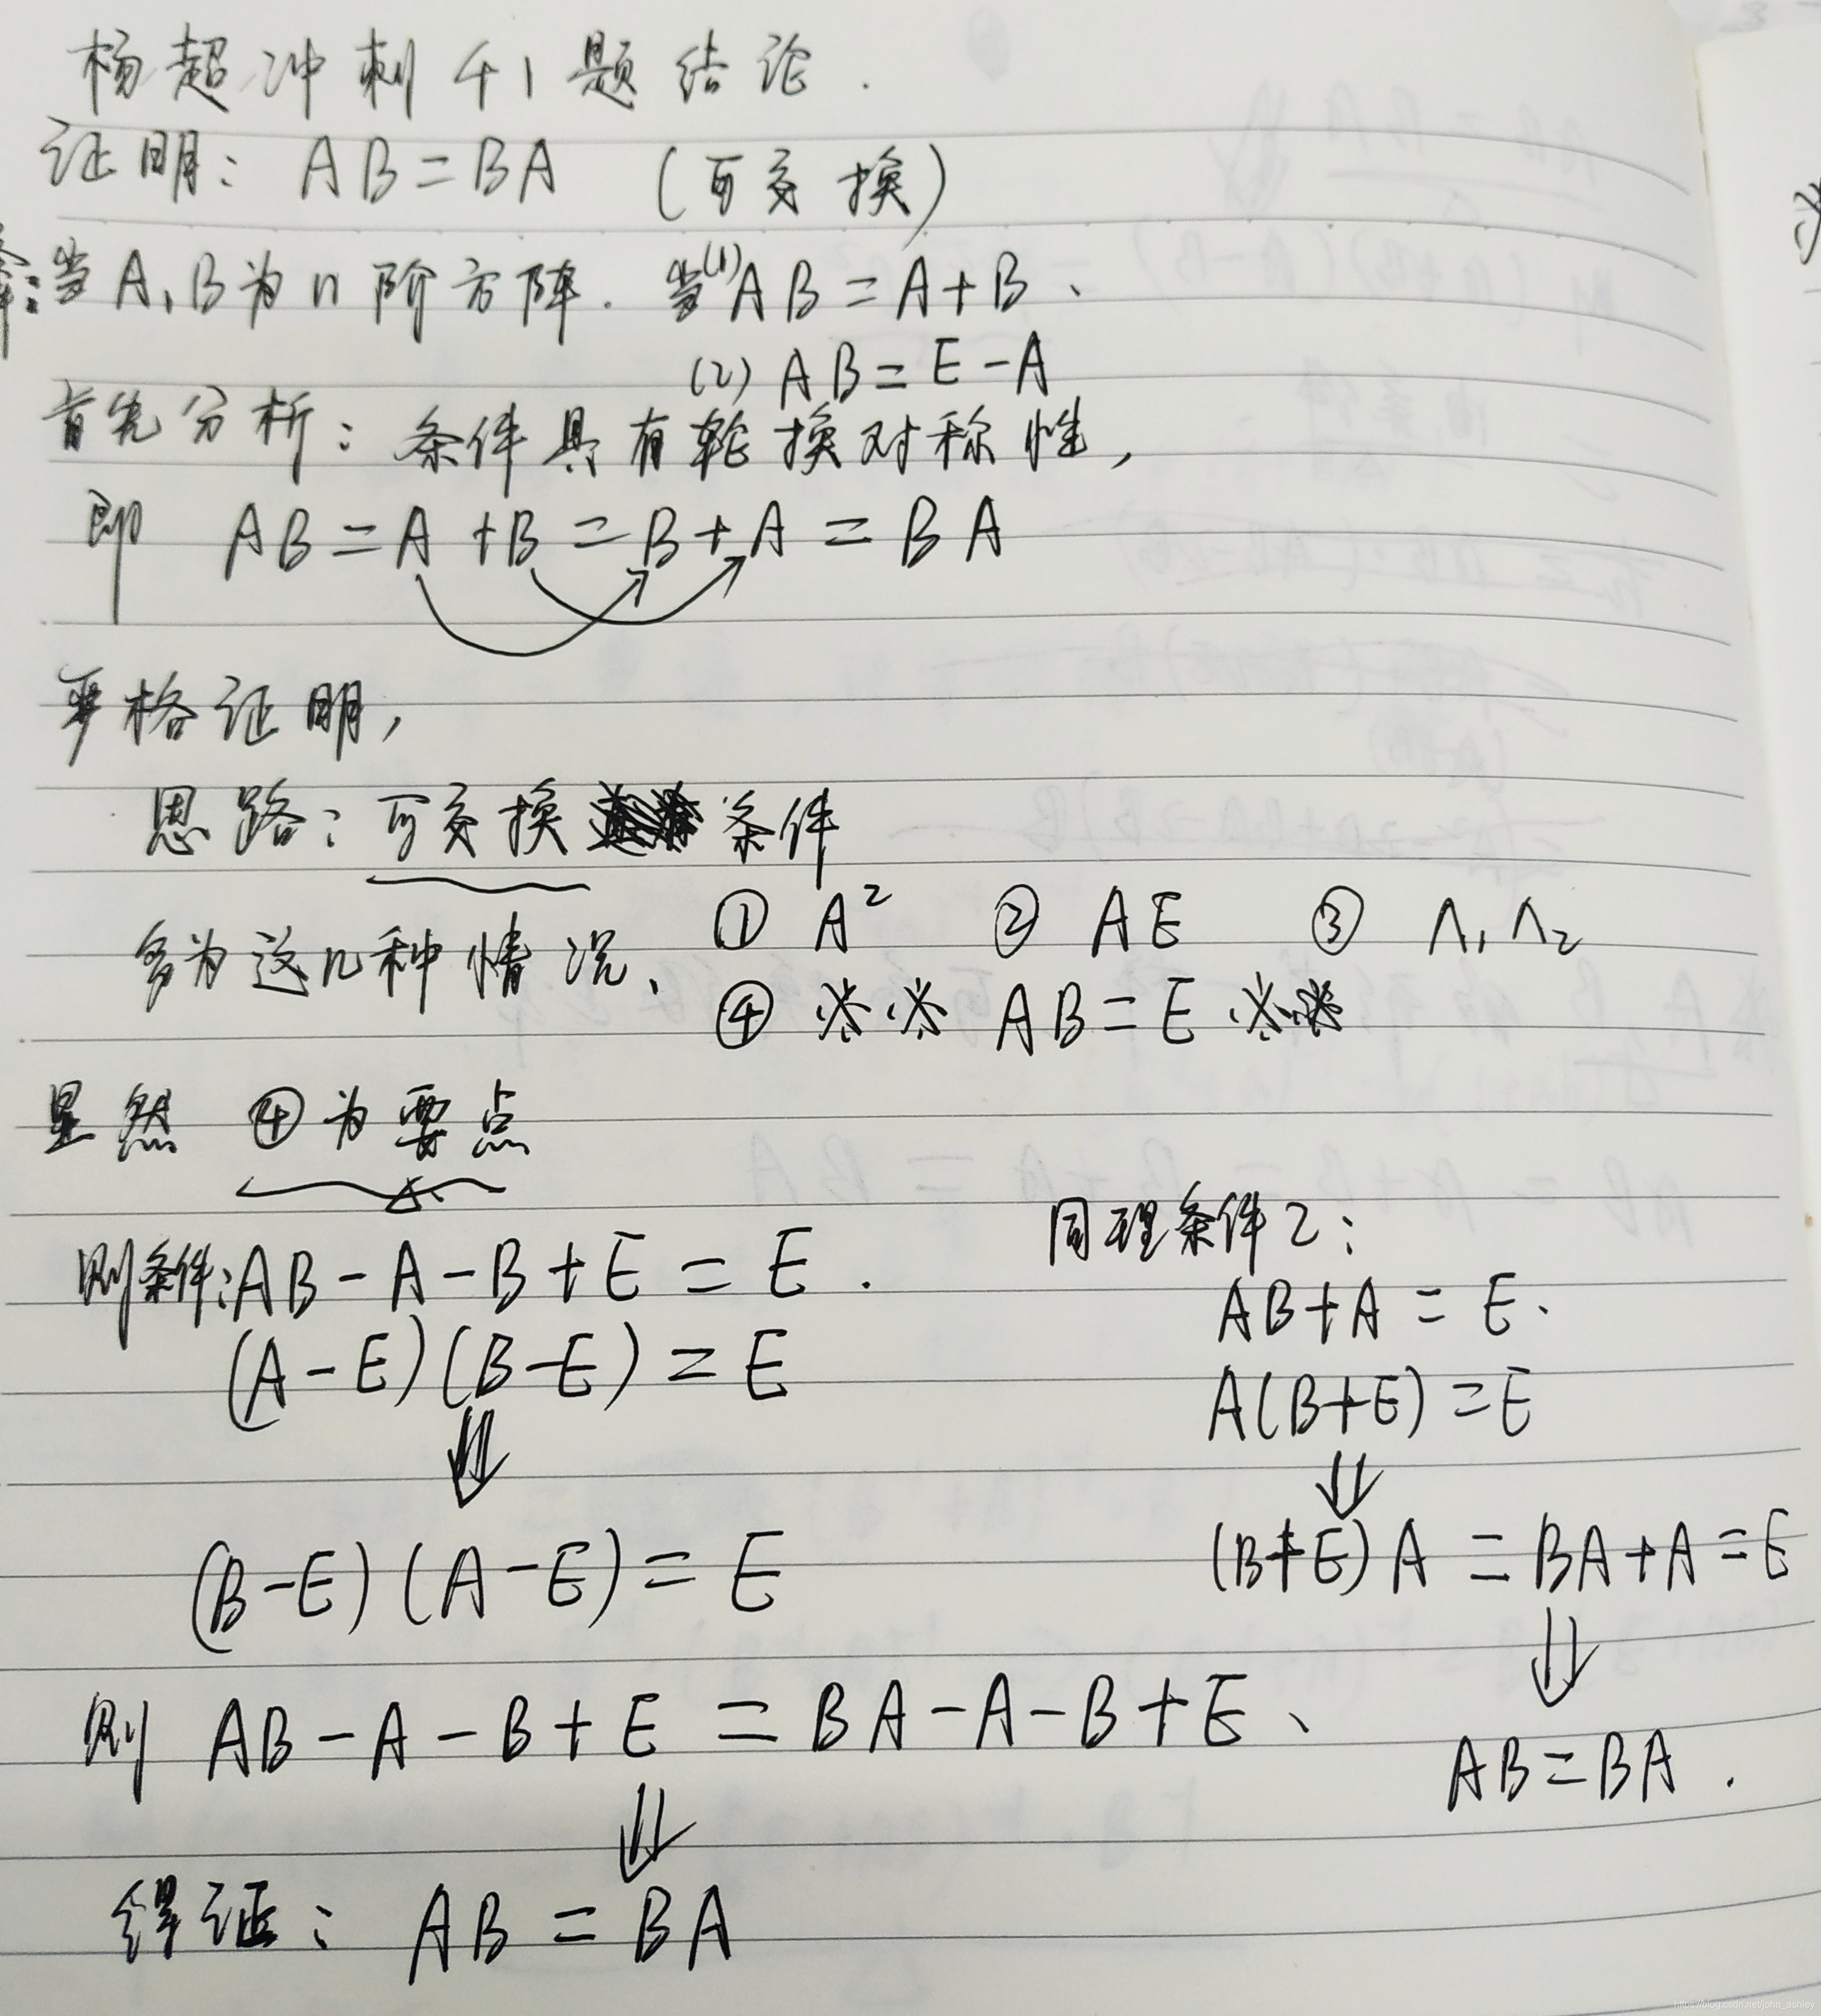 杨超冲刺41题结论.
证明: AB=BA (可交换)
当A,B为n阶方阵. 当(1)AB=A+B、
(2) AB=E-A
首先分析: 条件具有轮换对称性,
即 AB=A+B=B+A=BA
严格证明,
思路: 可交换 条件
多为这几种情况、 ① A² ② AE ③ Λ₁Λ₂
④ ※※ AB=E ※※
显然 ④为要点
则条件:AB-A-B+E=E.
(A-E)(B-E)=E
⇓
(B-E)(A-E)=E
则 AB-A-B+E=BA-A-B+E、
⇓
得证: AB=BA
同理条件2:
AB+A=E.
A(B+E)=E
⇓
(B+E)A=BA+A=E
⇓
AB=BA.
https://blog.csdn.net/john_ashley